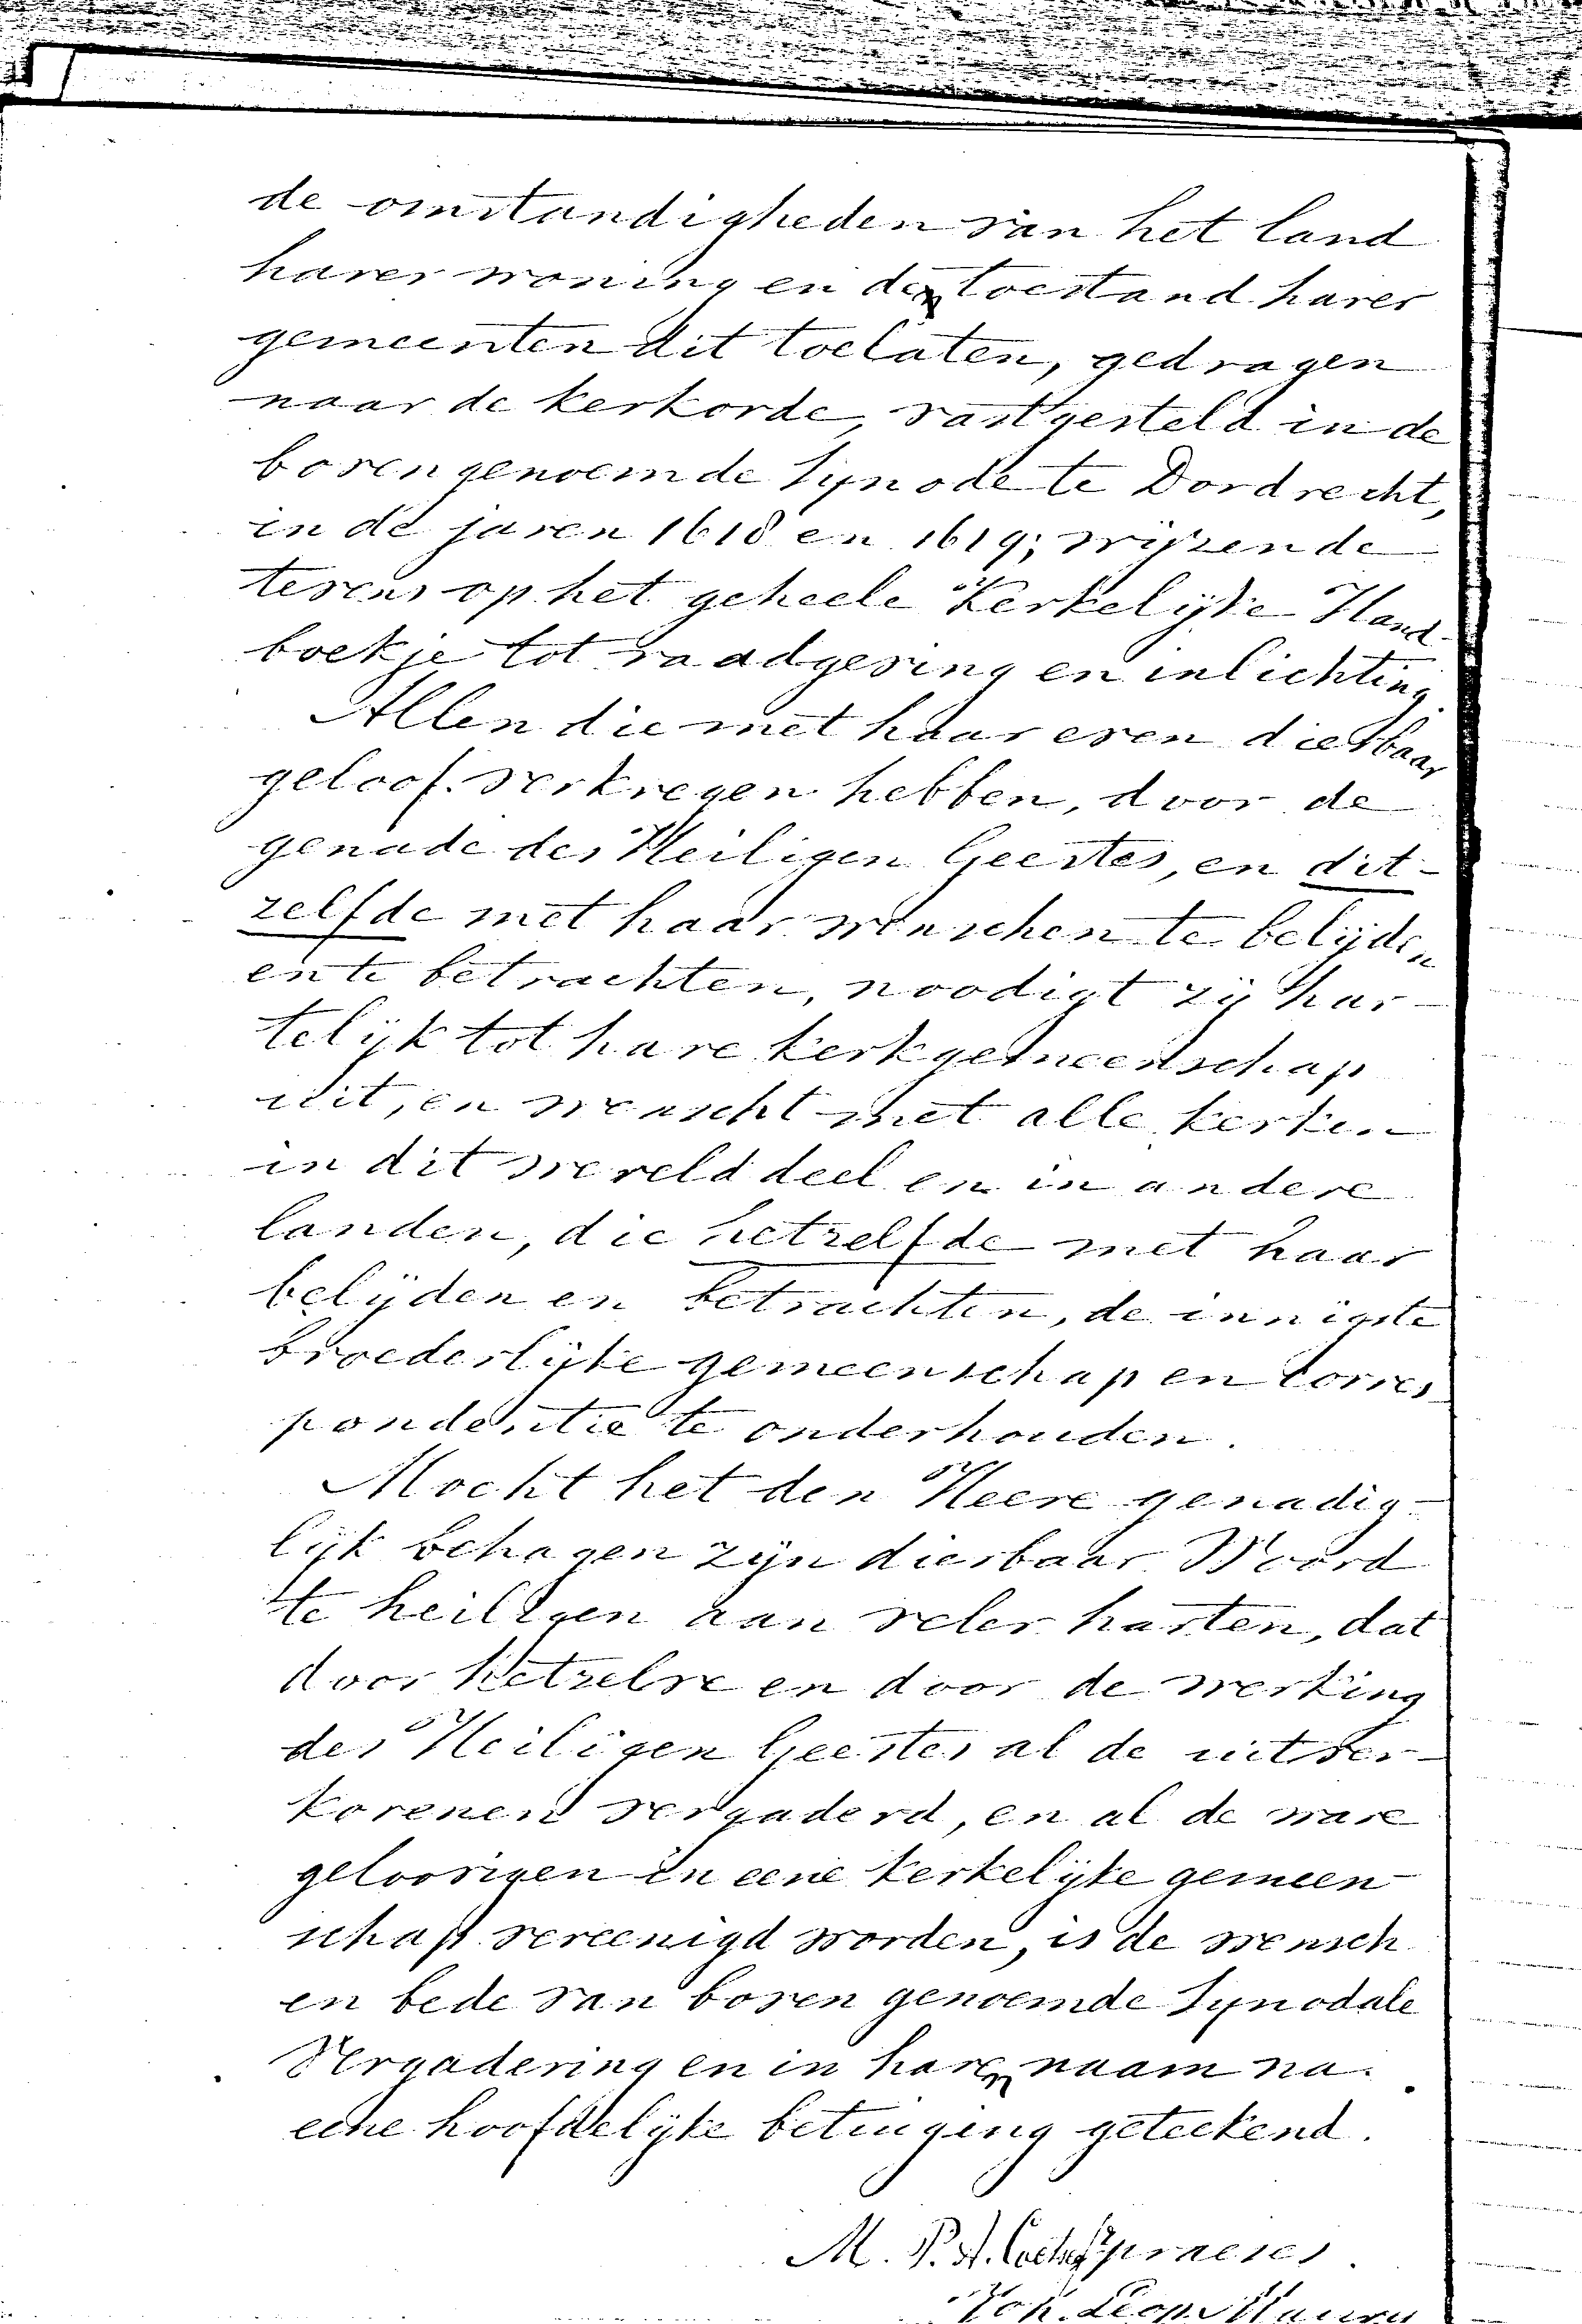 de omstandigheden van het land
harer woning en de toestand harer
gemeenten dit toelaten, gedragen
naar de kerkorde, vastgesteld in de
bovengenoemde Synode te Dordrecht,
in de jaren 1618 en 1619; wijzende
tevens op het geheele Kerkelijke Hand-
boekje tot raadgeving en inlichting.
Allen die met haar even dierbaar
geloof verkregen hebben, door de
genade des Heiligen Geestes, en dit-
zelfde met haar wenschen te belijden
en te betrachten, noodigt zij har-
telijk tot hare kerkgemeenschap
uit, en wenscht met alle kerken
in dit werelddeel en in andere
landen, die hetzelfde met haar
belijden en betrachten, de innigste
broederlijke gemeenschap en Corres-
pondentie te onderhouden.
Mocht het den Heere genadig-
lijk behagen zijn dierbaar Woord
te heiligen aan veler harten, dat
door hetzelve en door de werking
des Heiligen Geestes al de uitver-
korenen vergaderd, en al de ware
geloovigen in eene kerkelijke gemeen-
schap vereenigd worden, is de wensch
en bede van boven genoemde Synodale
Vergadering en in hare naam na
eene hoofdelijke betuiging geteekend.
M. P. A. Coetsee praeses.
Joh. Leop. Maury